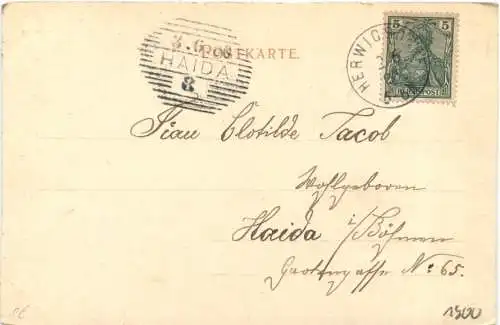 POSTKARTE.
3.6.00
HAIDA
8
HERWIGSDO
5
REICHSPOST
Frau Clotilde Jacob
Wohlgeboren
Haida i/Böhmen
Gartengasse No: 65.
1900